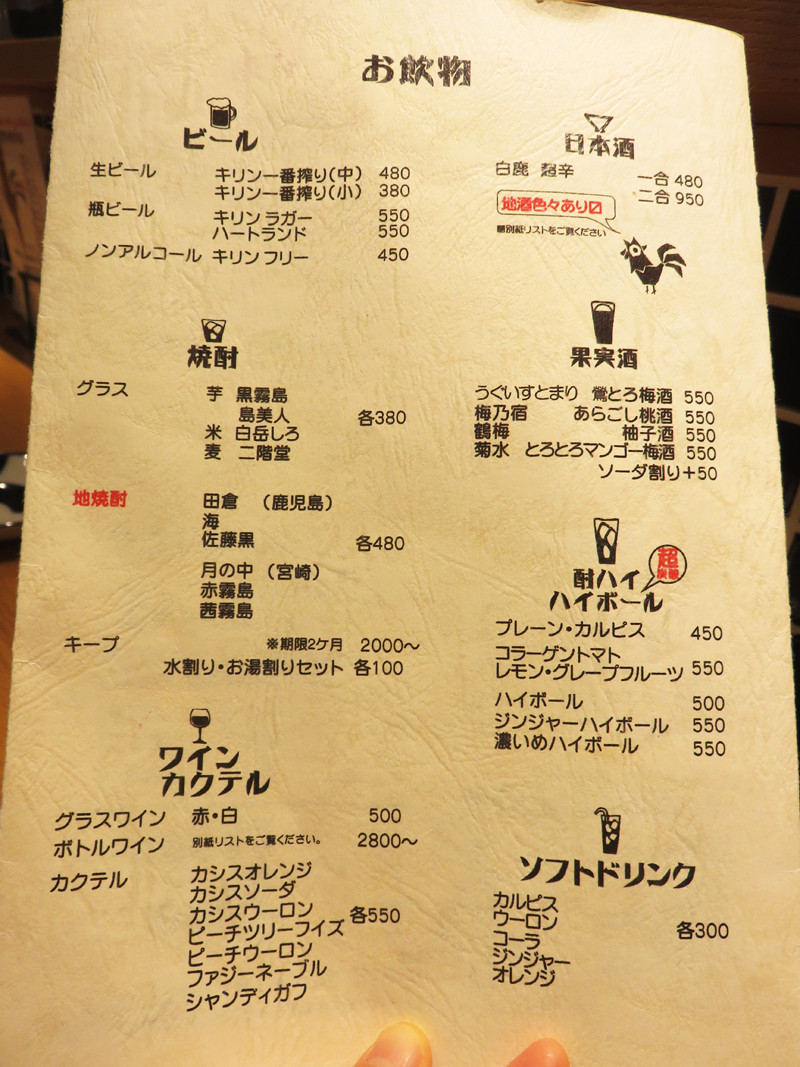 お飲物
ビール
生ビール キリン一番搾り(中) 480
キリン一番搾り(小) 380
瓶ビール キリンラガー 550
ハートランド 550
ノンアルコール キリンフリー 450
焼酎
グラス 芋 黒霧島
島美人 各380
米 白岳しろ
麦 二階堂
地焼酎 田倉 (鹿児島)
海
佐藤黒 各480
月の中 (宮崎)
赤霧島
茜霧島
キープ ※期限2ケ月 2000〜
水割り・お湯割りセット 各100
ワイン
カクテル
グラスワイン 赤・白 500
ボトルワイン 別紙リストをご覧ください。 2800〜
カクテル カシスオレンジ
カシスソーダ
カシスウーロン 各550
ピーチツリーフイズ
ピーチウーロン
ファジーネーブル
シャンディガフ
日本酒
白鹿 超辛 一合 480
二合 950
地酒色々あり〼
別紙リストをご覧ください
果実酒
うぐいすとまり 鶯とろ梅酒 550
梅乃宿 あらごし桃酒 550
鶴梅 柚子酒 550
菊水 とろとろマンゴー梅酒 550
ソーダ割り+50
酎ハイ
ハイボール
超
炭酸
プレーン・カルピス 450
コラーゲントマト
レモン・グレープフルーツ 550
ハイボール 500
ジンジャーハイボール 550
濃いめハイボール 550
ソフトドリンク
カルピス
ウーロン
コーラ 各300
ジンジャー
オレンジ